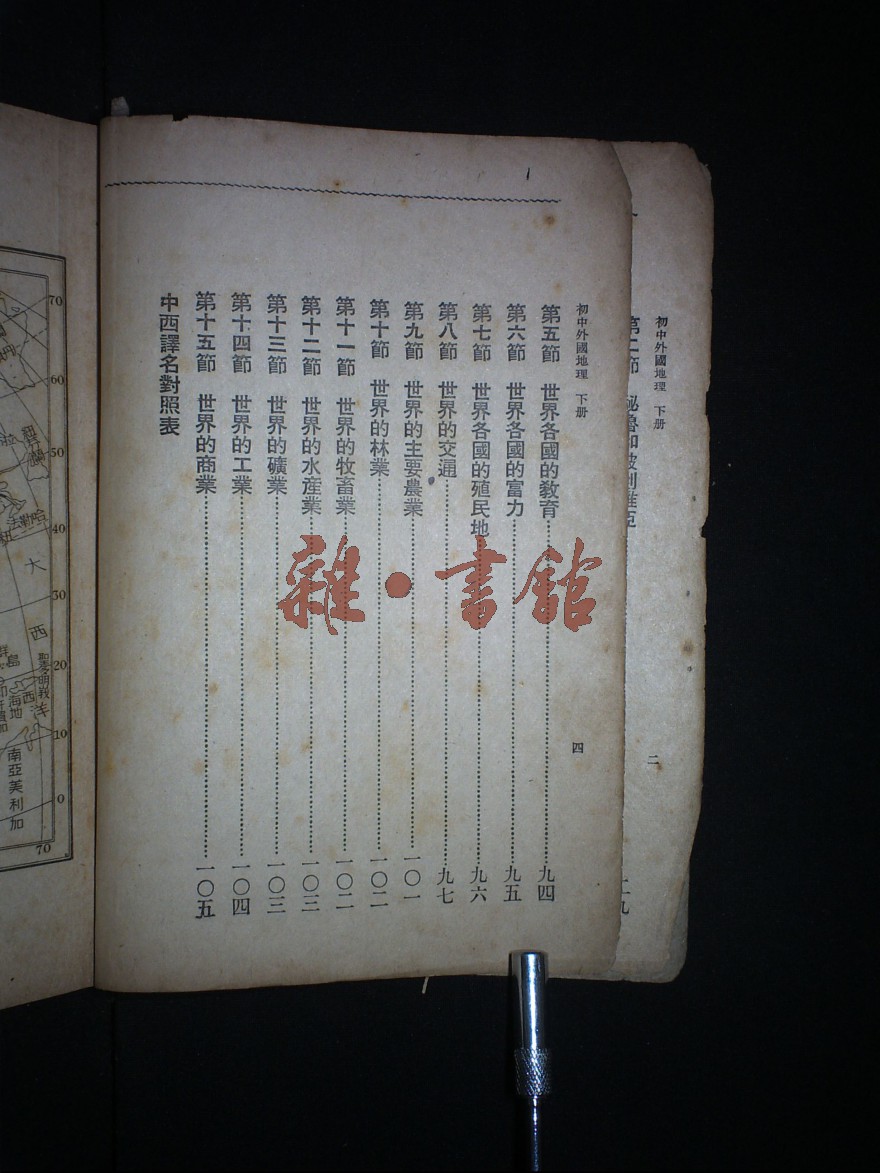 初中外國地理 下册
二
第二節 祕魯和玻利維亞
初中外國地理 下册
四
第五節 世界各國的教育⋯⋯九四
第六節 世界各國的富力⋯⋯九五
第七節 世界各國的殖民地⋯⋯九六
第八節 世界的交通⋯⋯九七
第九節 世界的主要農業⋯⋯一〇一
第十節 世界的林業⋯⋯一〇二
第十一節 世界的牧畜業⋯⋯一〇二
第十二節 世界的水產業⋯⋯一〇三
第十三節 世界的礦業⋯⋯一〇三
第十四節 世界的工業⋯⋯一〇四
第十五節 世界的商業⋯⋯一〇五
中西譯名對照表
雜·書館
70
60
50
40
30
20
10
0
70
大西洋
聖多明我
海地
南亞美利加